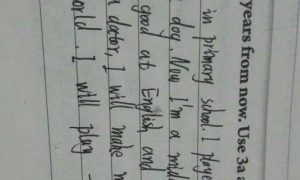 years from now. Use 3a a
in primary school. I playe
dog. Now I'm a mid
good at English, and
doctor, I will make m
orld. I will play